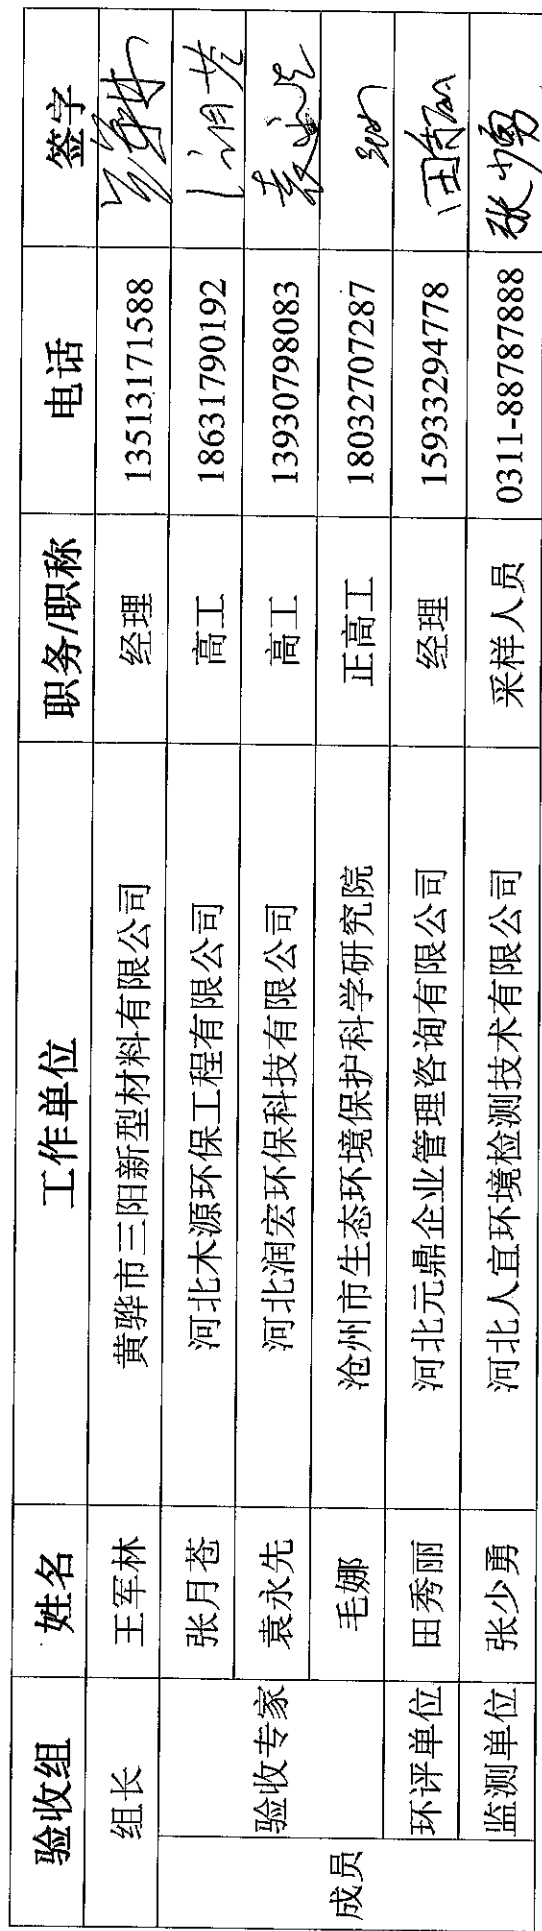 验收组 姓名 工作单位 职务/职称 电话 签字
组长 王军林 黄骅市三阳新型材料有限公司 经理 13513171588
成员 验收专家 张月苍 河北木源环保工程有限公司 高工 18631790192
袁永先 河北润宏环保科技有限公司 高工 13930798083
毛娜 沧州市生态环境保护科学研究院 正高工 18032707287
环评单位 田秀丽 河北元鼎企业管理咨询有限公司 经理 15933294778
监测单位 张少勇 河北人宜环境检测技术有限公司 采样人员 0311-88787888 张少勇